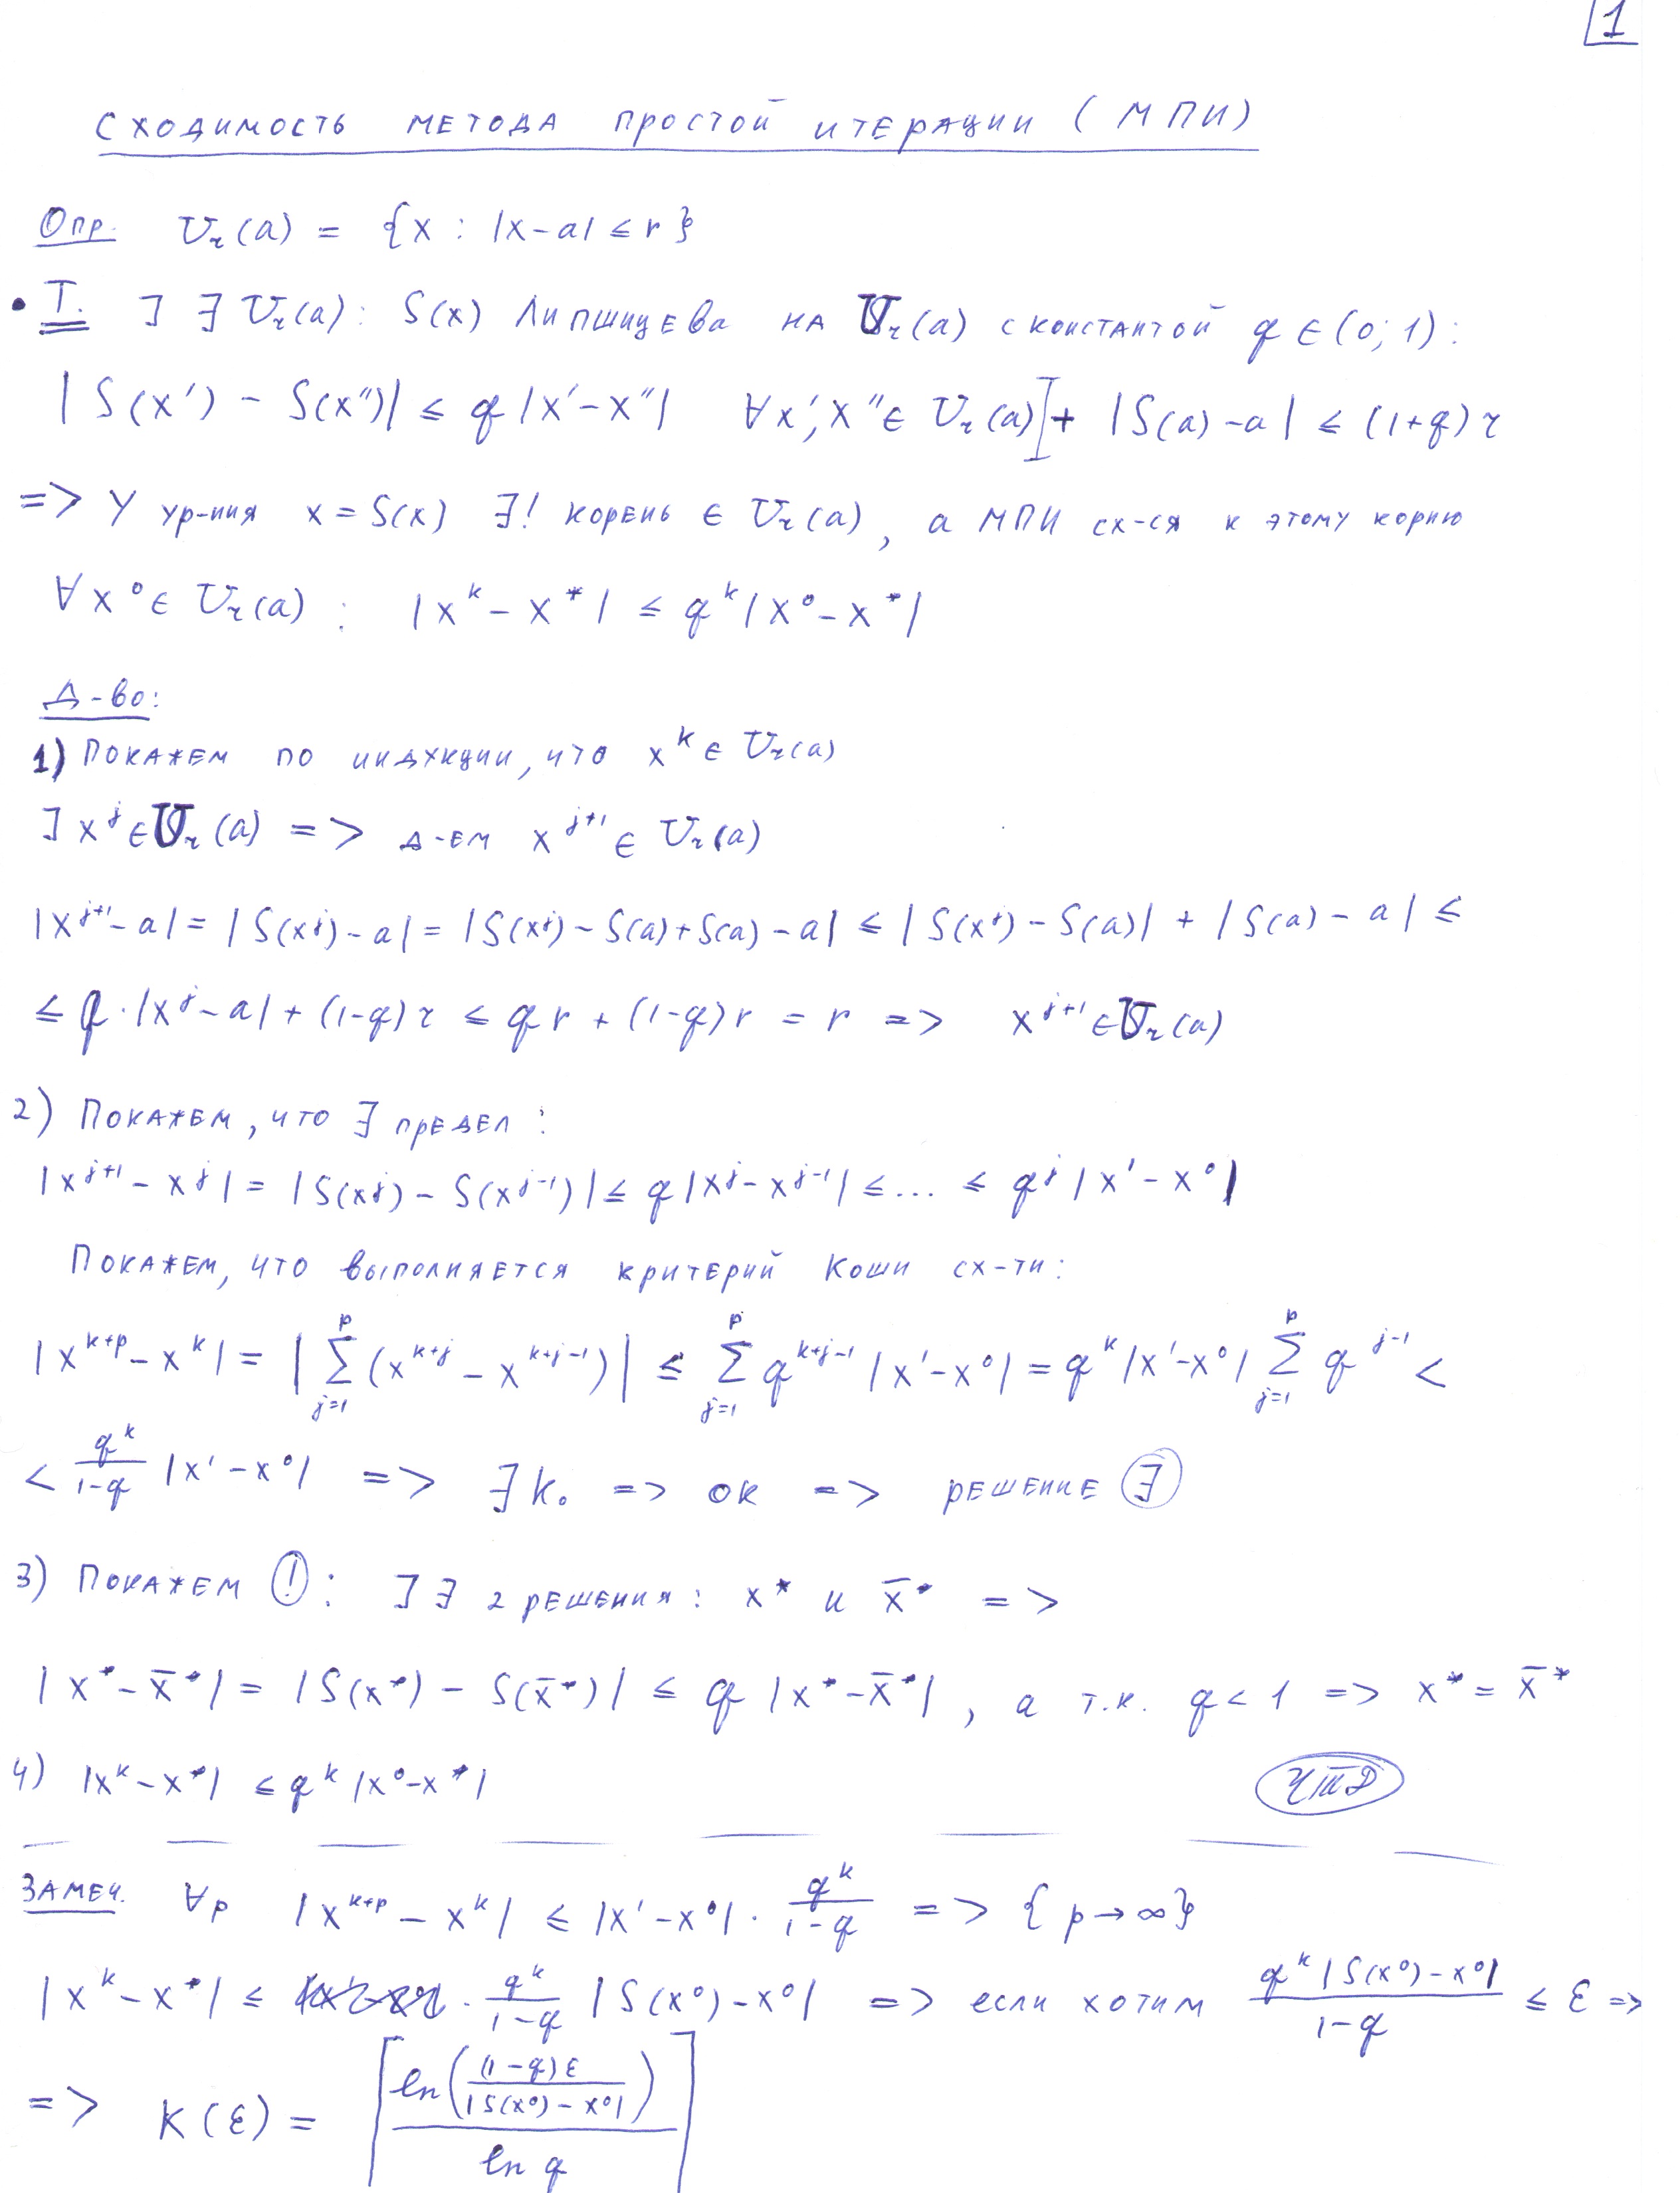 1
Сходимость метода простой итерации (МПИ)
Опр. U_r(a) = {x : |x-a| ≤ r}
• Т. ] ∃ U_r(a): S(x) Липшицева на U_r(a) с константой q ∈ (0; 1):
|S(x') - S(x'')| ≤ q |x'-x''| ∀x', x'' ∈ U_r(a) + |S(a) - a| ≤ (1+q) r
=> У ур-ния x = S(x) ∃! корень ∈ U_r(a), а МПИ сх-ся к этому корню
∀ x⁰ ∈ U_r(a) : |x^k - x^*| ≤ q^k |x⁰ - x^*|
Д-во:
1) Покажем по индукции, что x^k ∈ U_r(a)
] x^j ∈ U_r(a) => д-ем x^{j+1} ∈ U_r(a)
|x^{j+1} - a| = |S(x^j) - a| = |S(x^j) - S(a) + S(a) - a| ≤ |S(x^j) - S(a)| + |S(a) - a| ≤
≤ q · |x^j - a| + (1-q) r ≤ q r + (1-q) r = r => x^{j+1} ∈ U_r(a)
2) Покажем, что ∃ предел:
|x^{j+1} - x^j| = |S(x^j) - S(x^{j-1})| ≤ q |x^j - x^{j-1}| ≤ ... ≤ q^j |x' - x⁰|
Покажем, что выполняется критерий Коши сх-ти:
|x^{k+p} - x^k| = |∑_{j=1}^{p} (x^{k+j} - x^{k+j-1})| ≤ ∑_{j=1}^{p} q^{k+j-1} |x' - x⁰| = q^k |x' - x⁰| ∑_{j=1}^{p} q^{j-1} <
< \frac{q^k}{1-q} |x' - x⁰| => ∃ k₀ => ок => решение ∃
3) Покажем !: ] ∃ 2 решения: x^* и x̄^* =>
|x^* - x̄^*| = |S(x^*) - S(x̄^*)| ≤ q |x^* - x̄^*|, а т.к. q < 1 => x^* = x̄^*
4) |x^k - x^*| ≤ q^k |x⁰ - x^*| ЧТД
Замеч. ∀p |x^{k+p} - x^k| ≤ |x' - x⁰| · \frac{q^k}{1-q} => {p → ∞}
|x^k - x^*| ≤ · \frac{q^k}{1-q} |S(x⁰) - x⁰| => если хотим \frac{q^k |S(x⁰) - x⁰|}{1-q} ≤ ε =>
=> K(ε) = ⌈\frac{ln(\frac{(1-q)ε}{|S(x⁰) - x⁰|})}{ln q}⌉